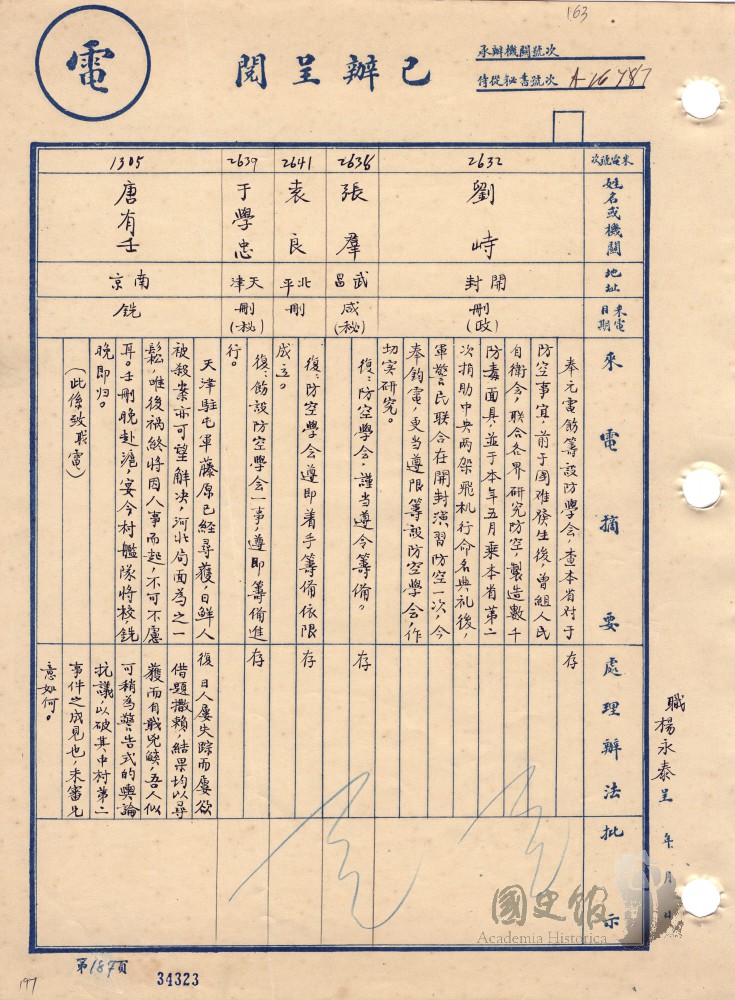 163
電
已辦呈閱
承辦機關號次
侍從祕書號次 A-16787
來電號次
姓名或機關
地址
來電日期
來電摘要
處理辦法
批示
2632
劉峙
開封
刪(政)
奉元電飭籌設防學会,查本省对于
防空事宜,前于国难發生後,曾組人民
自衛会,联合各界研究防空,製造數千
防毒面具,並于本年五月乘本省第二
次捐助中央兩架飛机行命名典礼後,
軍警民联合在開封演習防空一次,今
奉鈞電,更当遵限籌設防空學会,作
切实研究。
存
2636
張羣
武昌
咸(秘)
復:防空學会,謹当遵令籌備。
存
2641
袁良
北平
刪
復:防空學会遵即着手籌備依限
成立。
存
2639
于學忠
天津
刪(秘)
復:飭設防空學会一事,遵即籌備進
行。
存
1305
唐有壬
南京
銑
天津駐屯軍藤原已經尋獲,日鮮人
被殺案亦可望解决,河北局面為之一
鬆,唯後禍終將因人事而起,不可不慮
耳。壬刪晚赴滬,宴今村艦隊將校銑
晚即归。
(此係致職電)
復 日人屢失踪而屢欲
借題撒賴,結果均以尋
獲而自戢兇鋒,吾人似
可稍為警告式的輿論
抗議,以破其中村第二
事件之成見也,未審兄
意如何。
職楊永泰呈 年 月 日
國史館
Academia Historica
第187頁
34323
197